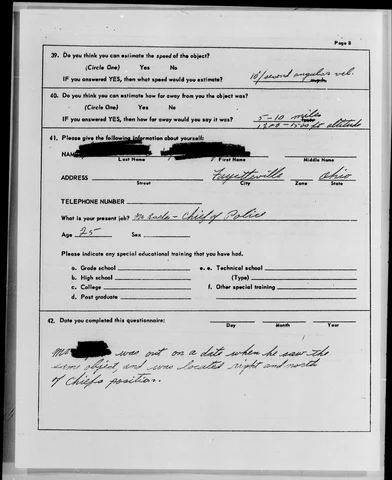 Page 8
39. Do you think you can estimate the speed of the object?
(Circle One) Yes No
IF you answered YES, then what speed would you estimate? 10°/second angular vel.
40. Do you think you can estimate how far away from you the object was?
(Circle One) Yes No
IF you answered YES, then how far away would you say it was? 5-10 miles
altitude
41. Please give the following information about yourself:
NAME
Last Name First Name Middle Name
ADDRESS Fayetteville Ohio
Street City Zone State
TELEPHONE NUMBER
What is your present job? - Chief of Police
Age 25 Sex
Please indicate any special educational training that you have had.
a. Grade school e. e. Technical school
b. High school (Type)
c. College f. Other special training
d. Post graduate
42. Date you completed this questionnaire:
Day Month Year
was out on a date when he saw the
same object, and was located right and north
of Chiefs position.